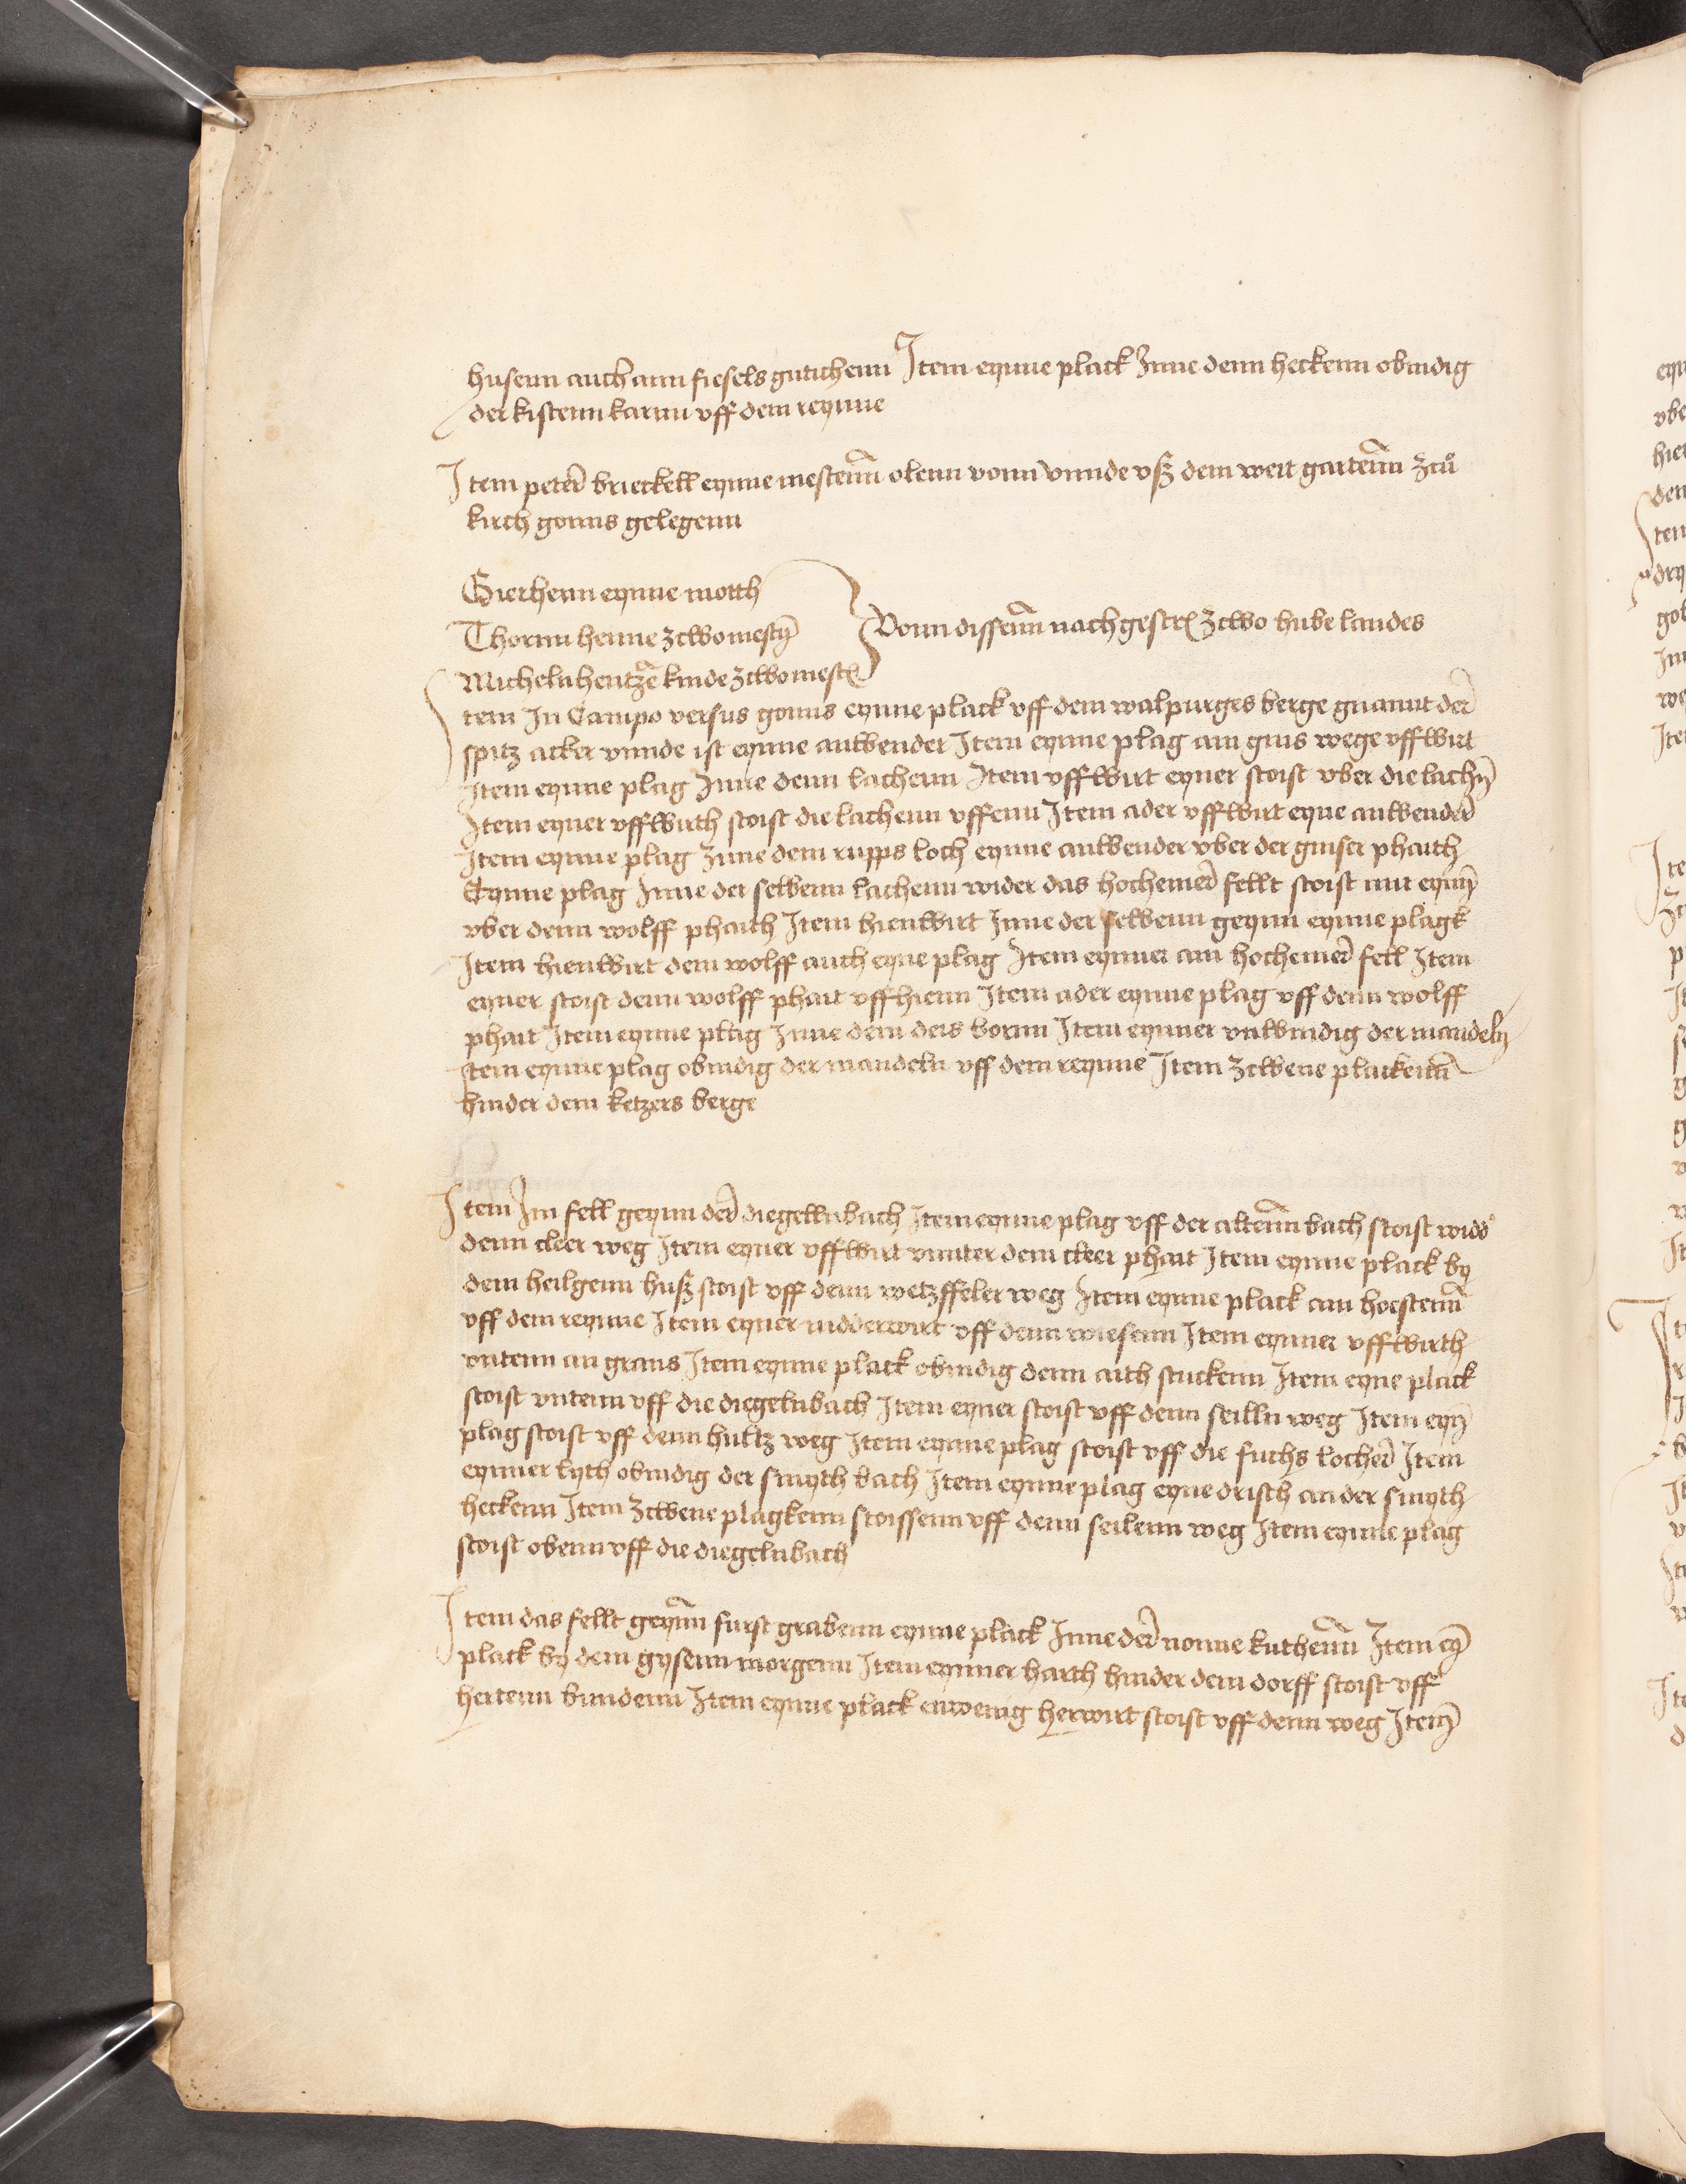 husenn auch ann fiesels gutichenn Item eynne plack Inne denn heckenn obindig
der kistenn karnn vff dem reynne
Item peter brieckell eynne mestenn olenn vonn vnnde vß dem wert gartenn zcu
kirch gonns gelegenn
Gierhenn eynne motth
Thornn henne zcwo mesty
Michelnhentze kinde zcwo mest
Vonn dissenn nachgescr zcwo hube landes
Item In Campo versus gonns eynne plack vff dem walpurges berge gnannt der
spitz acker vnnde ist eynne anwender Item eynne plag am gins wege vffwirt
Item eynne plag Inne denn lachenn Item vffwirt eyner stoist vber die lachn
Item eyner vffwirth stoist die lachenn vffenn Item ader vffwirt eyne anwender
Item eynne plag Inne dem rupps loch eynne anwender vber der ginser phaith
Eynne plag Inne der selbenn lachenn wider das hochemer fellt stoist mit eynn
vber denn wolff phaith Item hienwirt Inne der selbenn geynn eynne plagk
Item hienwirt dem wolff auch eyne plag Item eynner am hochemer fell Item
eyner stoist denn wolff phait vffhienn Item ader eynne plag vff denn wolff
phait Item eynne plag Inne dem deis bornn Item eynner vnwindig der mandeln
Item eynne plag obindig der mandeln vff dem reynne Item zcwene plackenn
hinder dem ketzers berge
Item Im fell geynn der diegellnbach Item eynne plag vff der altenn bach stoist wider
denn cleer weg Item eyner vffwirt vnnter dem cleer phait Item eynne plack by
dem heilgenn huß stoist vff denn wetzffeler weg Item eynne plack am hoestenn
vff dem reynne Item eyner nidderwirt vff denn wiesenn Item eynner vffwirth
vntenn an grans Item eynne plack obindig denn aith stuckenn Item eyne plack
stoist vntenn vff die diegelnbach Item eyner stoist vff denn seilln weg Item eyn
plag stoist vff denn hultz weg Item eynne plag stoist vff die fuchs locher Item
eynner lyth obindig der smyth bach Item eynne plag eyne drisch an der smyth
heckenn Item zcwene plagkenn stoissenn vff denn seilenn weg Item eynne plag
stoist obenn vff die diegelnbach
Item das fellt geynn furst grabenn eynne plack Inne der nonne kuthenn Item ey
plack by dem gysenn morgenn Item eynner harth hinder dem dorff stoist vff
hertenn bundenn Item eynne plack enwenig herwirt stoist vff denn weg Item